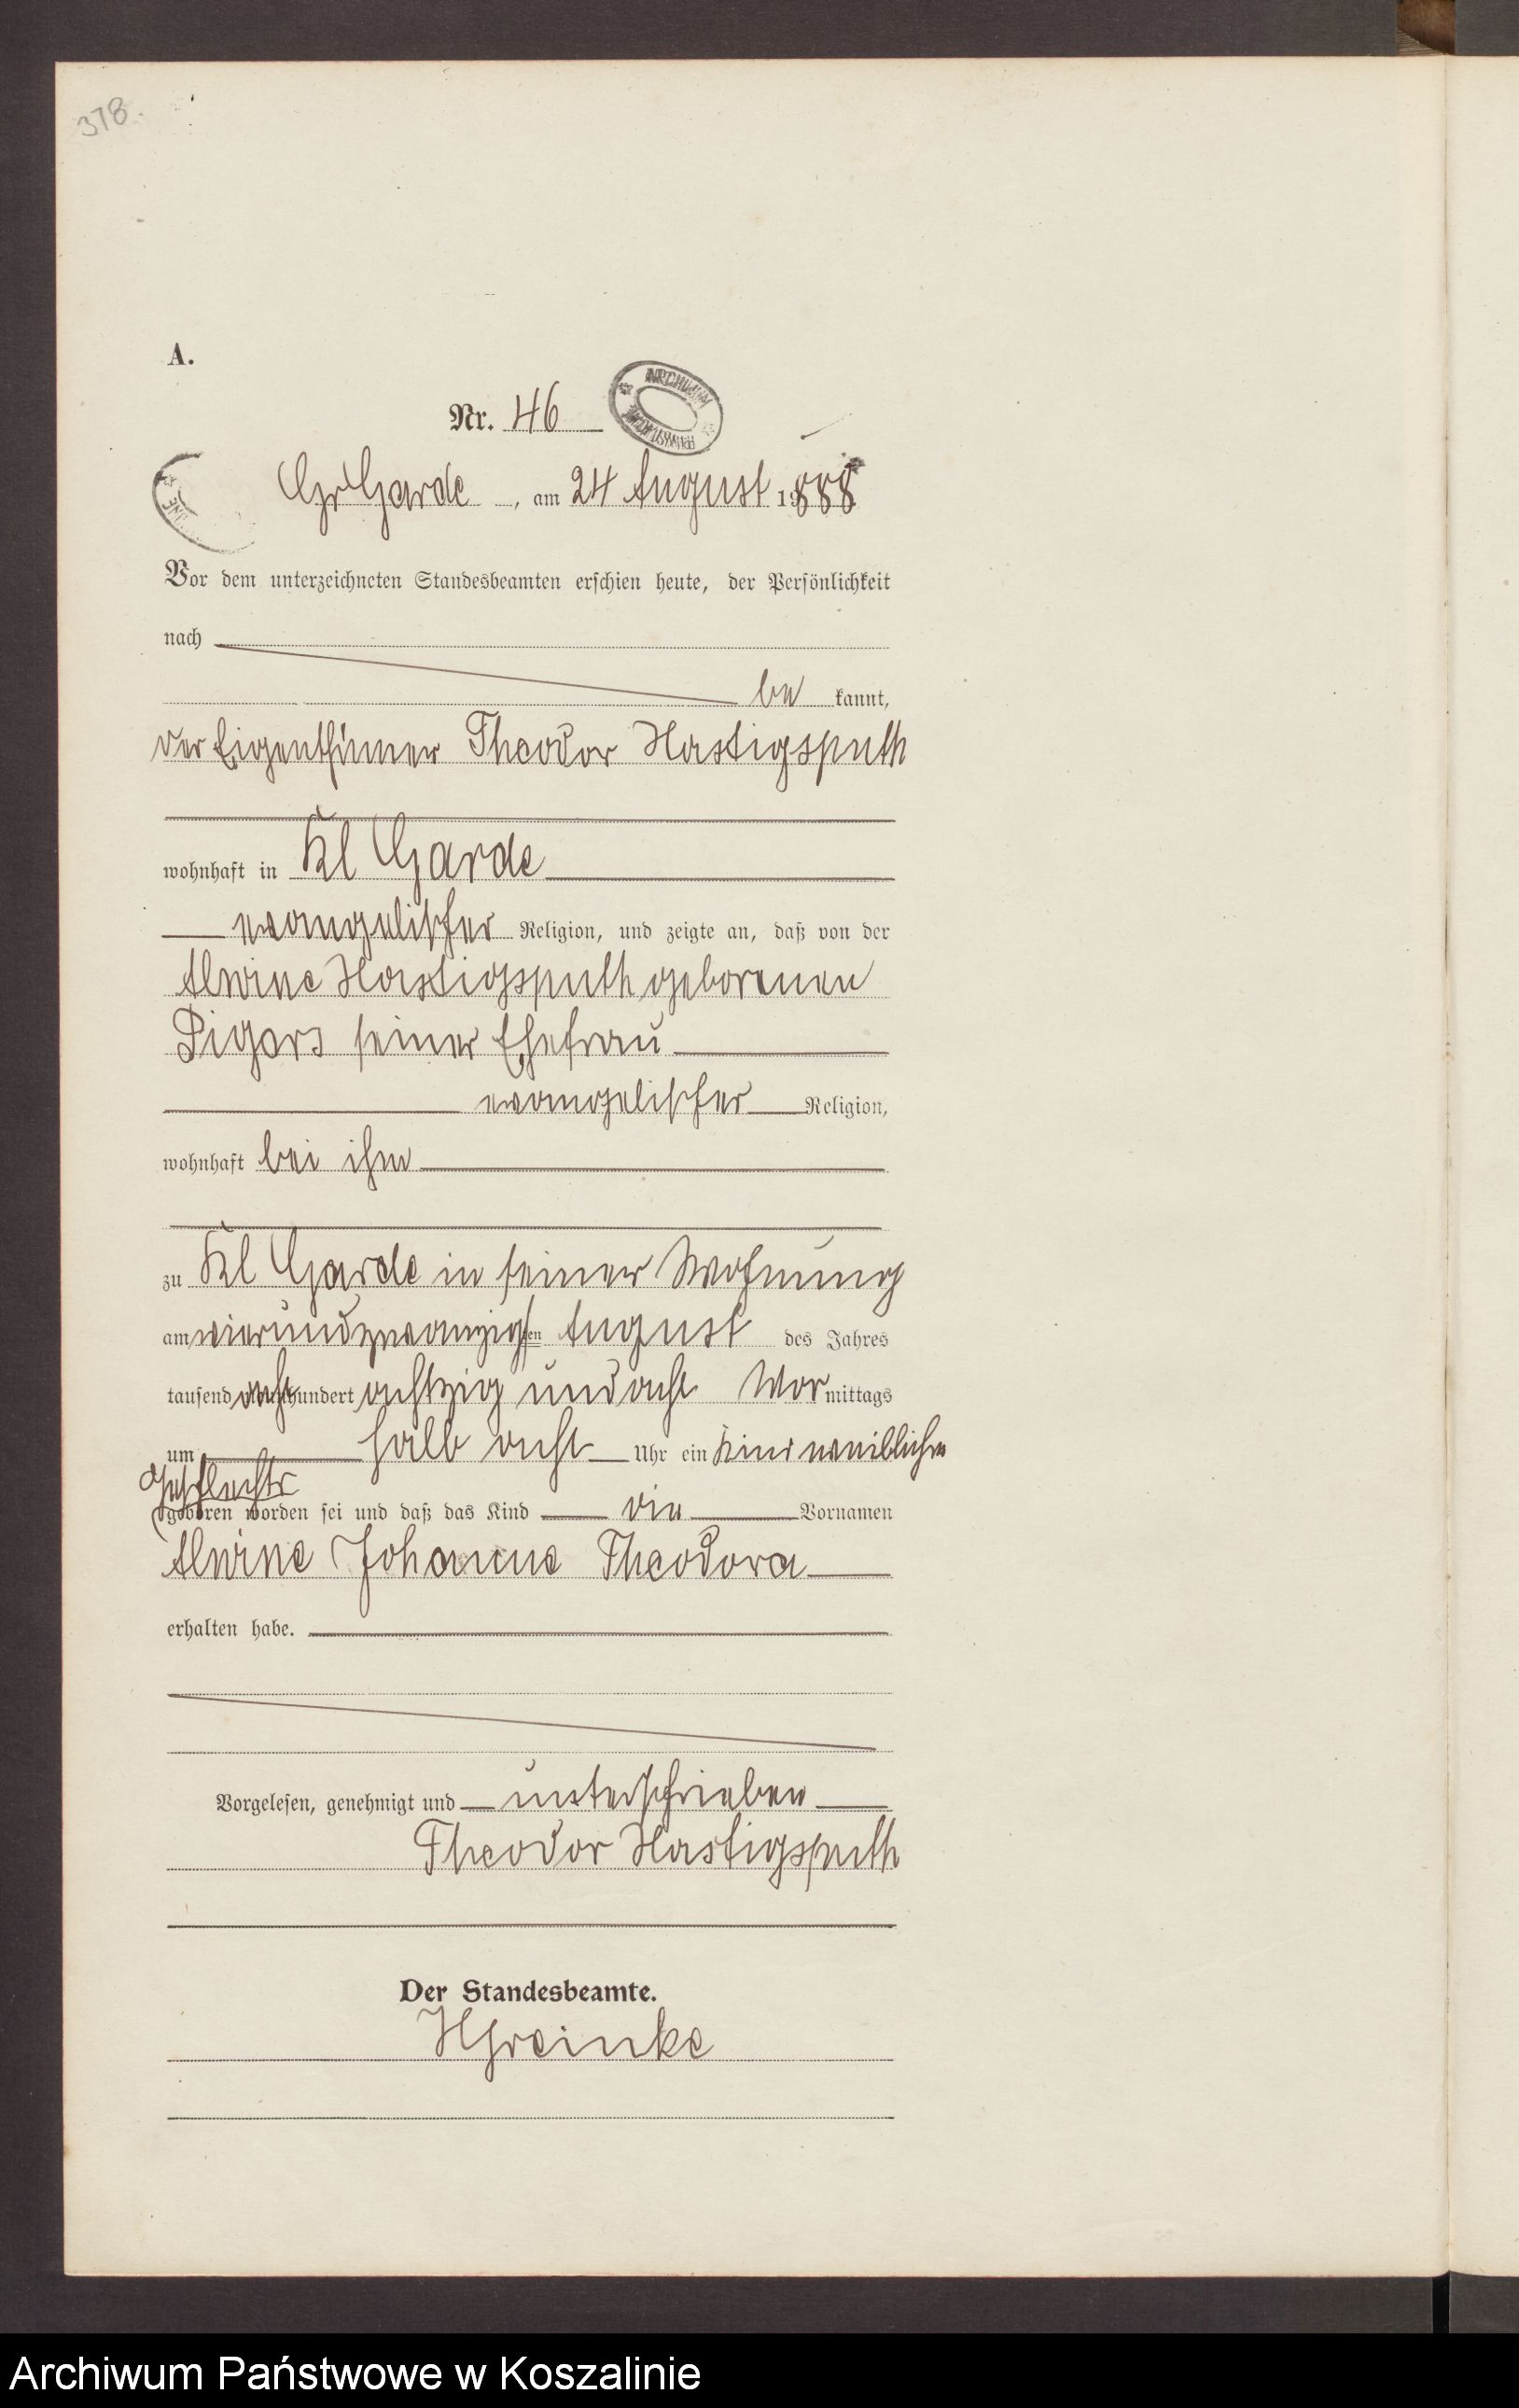 378.
A.
Nr. 46
ARCHIWUM
Gr Garde, am 24 August 1888
Vor dem unterzeichneten Standesbeamten erschien heute, der Persönlichkeit
nach
be kannt,
der Eigenthümer Theodor Hastigsputh
wohnhaft in Kl Garde
evangelischer Religion, und zeigte an, daß von der
Alwine Hastigsputh geborenen
Pigors seiner Ehefrau
evangelischer Religion,
wohnhaft bei ihm
zu Kl Garde in seiner Wohnung
am vierundzwanzigsten August des Jahres
tausend acht hundert achtzig und acht Vor mittags
um halb acht Uhr ein Kind weiblichen
Geschlechts
geboren worden sei und daß das Kind die Vornamen
Alwine Johanne Theodora
erhalten habe.
Vorgelesen, genehmigt und unterschrieben
Theodor Hastigsputh
Der Standesbeamte.
HGreinke
Archiwum Państwowe w Koszalinie